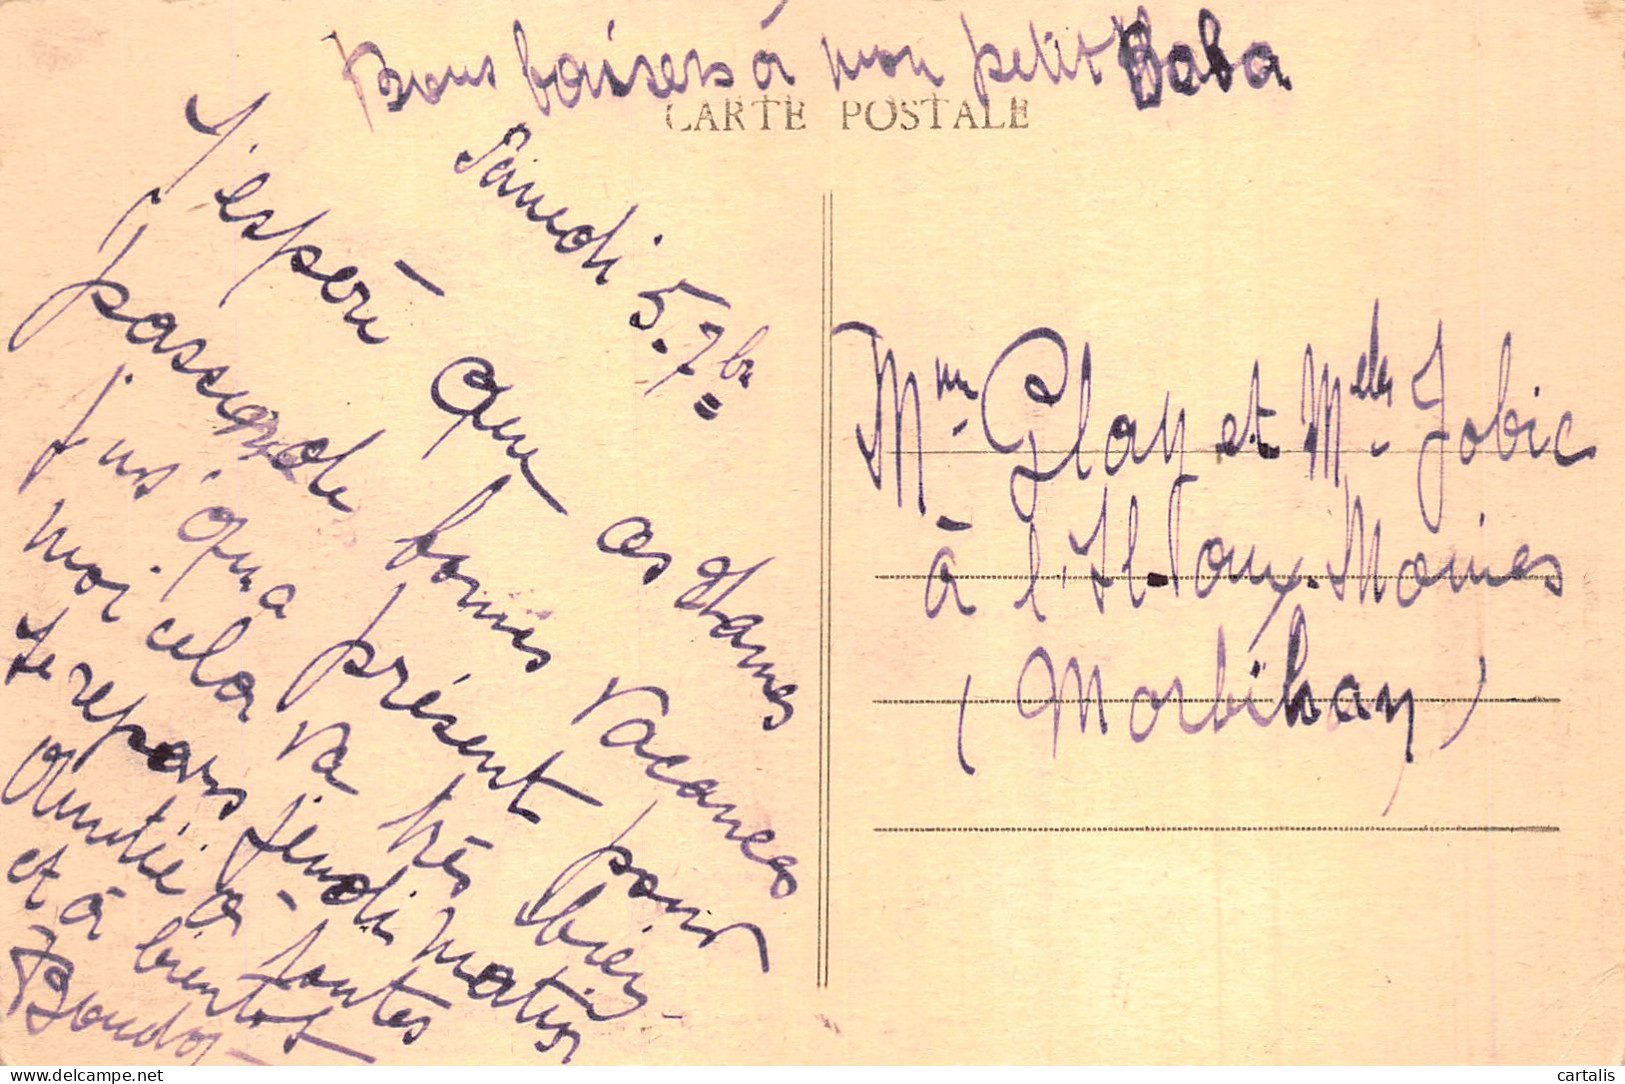 Bons baisers à mon petit Baba
CARTE POSTALE
Samedi 5. 7bre
J'espère que ces dames
passent de bonnes vacances
jusqu'à présent pour
moi cela va très bien
Je repars jeudi matin
Amitié à toutes
et à bientôt
Mme Glay et Melles Jobic
à l'Il-aux-Moines
(Morbihan)
cartalis